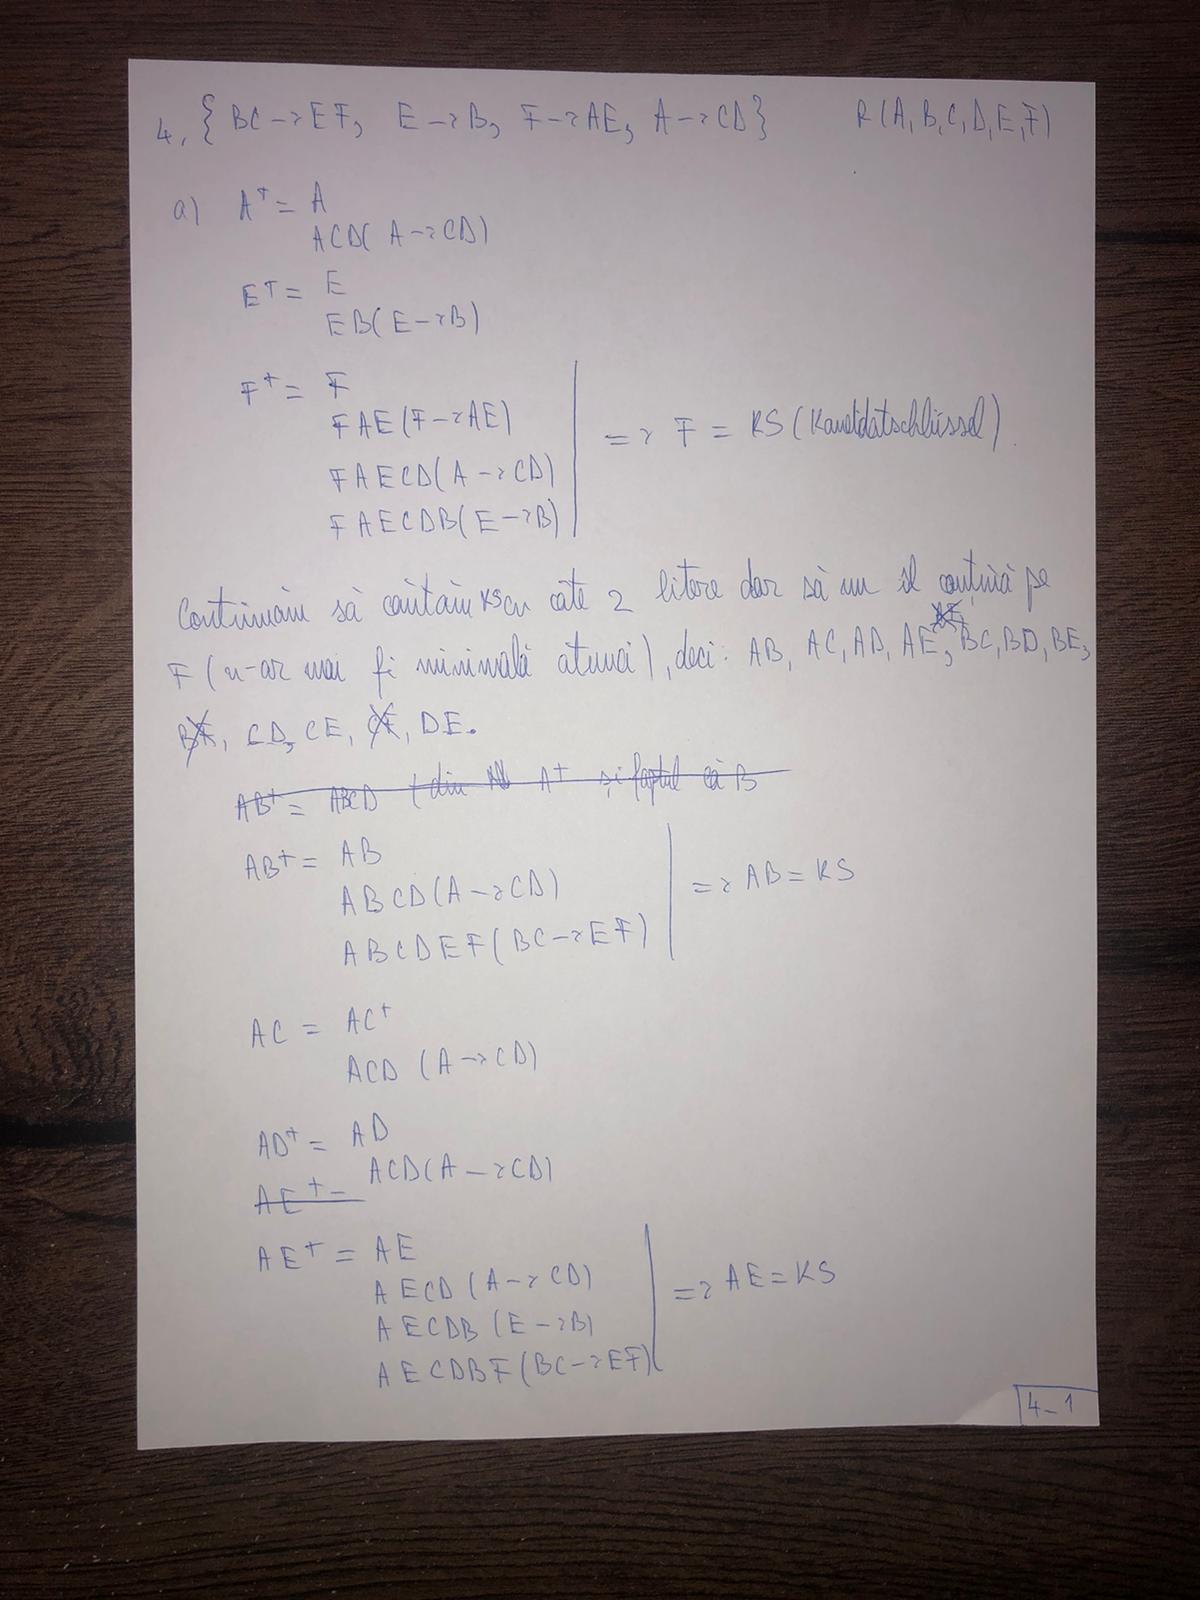 4. { BC → EF, E → B, F → AE, A → CD } R(A,B,C,D,E,F)
a) A⁺ = A
ACD( A → CD)
E⁺ = E
EB( E → B)
F⁺ = F
FAE (F → AE)
FAECD(A → CD)
FAECDB( E → B)
=> F = KS (Kandidatschlüssel).
Continuăm să căutăm KS cu câte 2 litere dar să nu îl conțină pe
F (n-ar mai fi minimală atunci), deci: AB, AC, AD, AE, AF, BC, BD, BE,
BF, CD, CE, CF, DE.
AB⁺ = ABCD (din A⁺ și faptul că B
AB⁺ = AB
ABCD(A → CD)
ABCDEF (BC → EF)
=> AB = KS
AC = AC⁺
ACD (A → CD)
AD⁺ = AD
ACD(A → CD)
AE⁺ =
AE⁺ = AE
AECD (A → CD)
AECDB (E → B)
AECDBF (BC → EF)
=> AE = KS
4-1